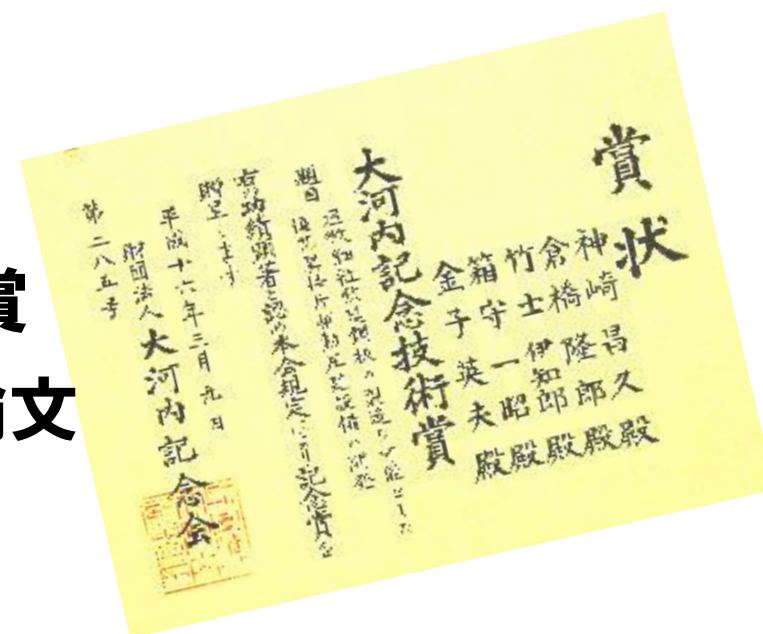 賞
論文
賞状
神崎昌久殿
倉橋隆郎殿
竹士伊知郎殿
箱守一昭殿
金子英夫殿
大河内記念技術賞
題目 超微細粒熱延鋼板の製造を可能とした
右功績顕著と認め本会規定により記念賞を
贈呈します
平成十六年三月九日
財団法人 大河内記念会
第二八五号